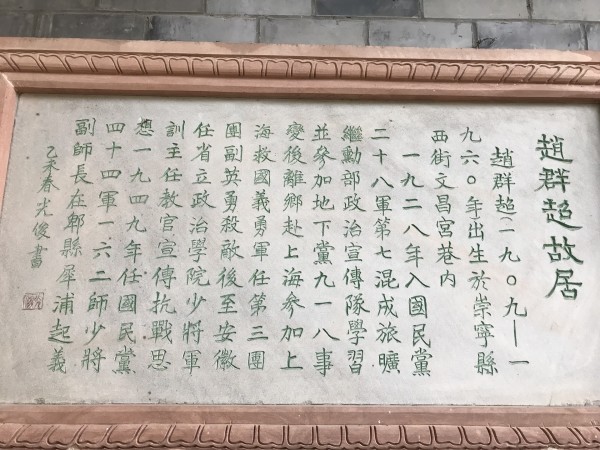 趙群超故居
趙群超(一九〇九—一
九六〇年)出生於崇寧縣
西街文昌宮巷內
一九二八年入國民黨
二十八軍第七混成旅曠
繼勳部政治宣傳隊學習
並參加地下黨九一八事
變後離鄉赴上海參加上
海救國義勇軍任第三團
團副英勇殺敵後至安徽
任省立政治學院少將軍
訓主任教官宣傳抗戰思
想一九四九年任國民黨
四十四軍一六二師少將
副師長在郫縣犀浦起義
乙未春光俊書